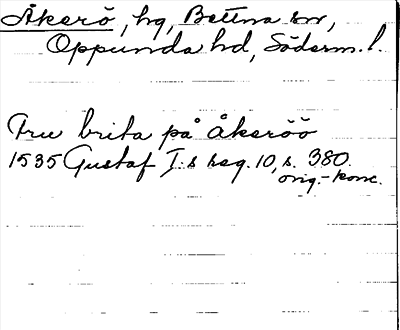 Åkerö, hg, Bettna sn,
Oppunda hd, Söderm. l.
Fru brita på åkeröö
1535 Gustaf I:s reg. 10, s. 380.
orig.-konc.